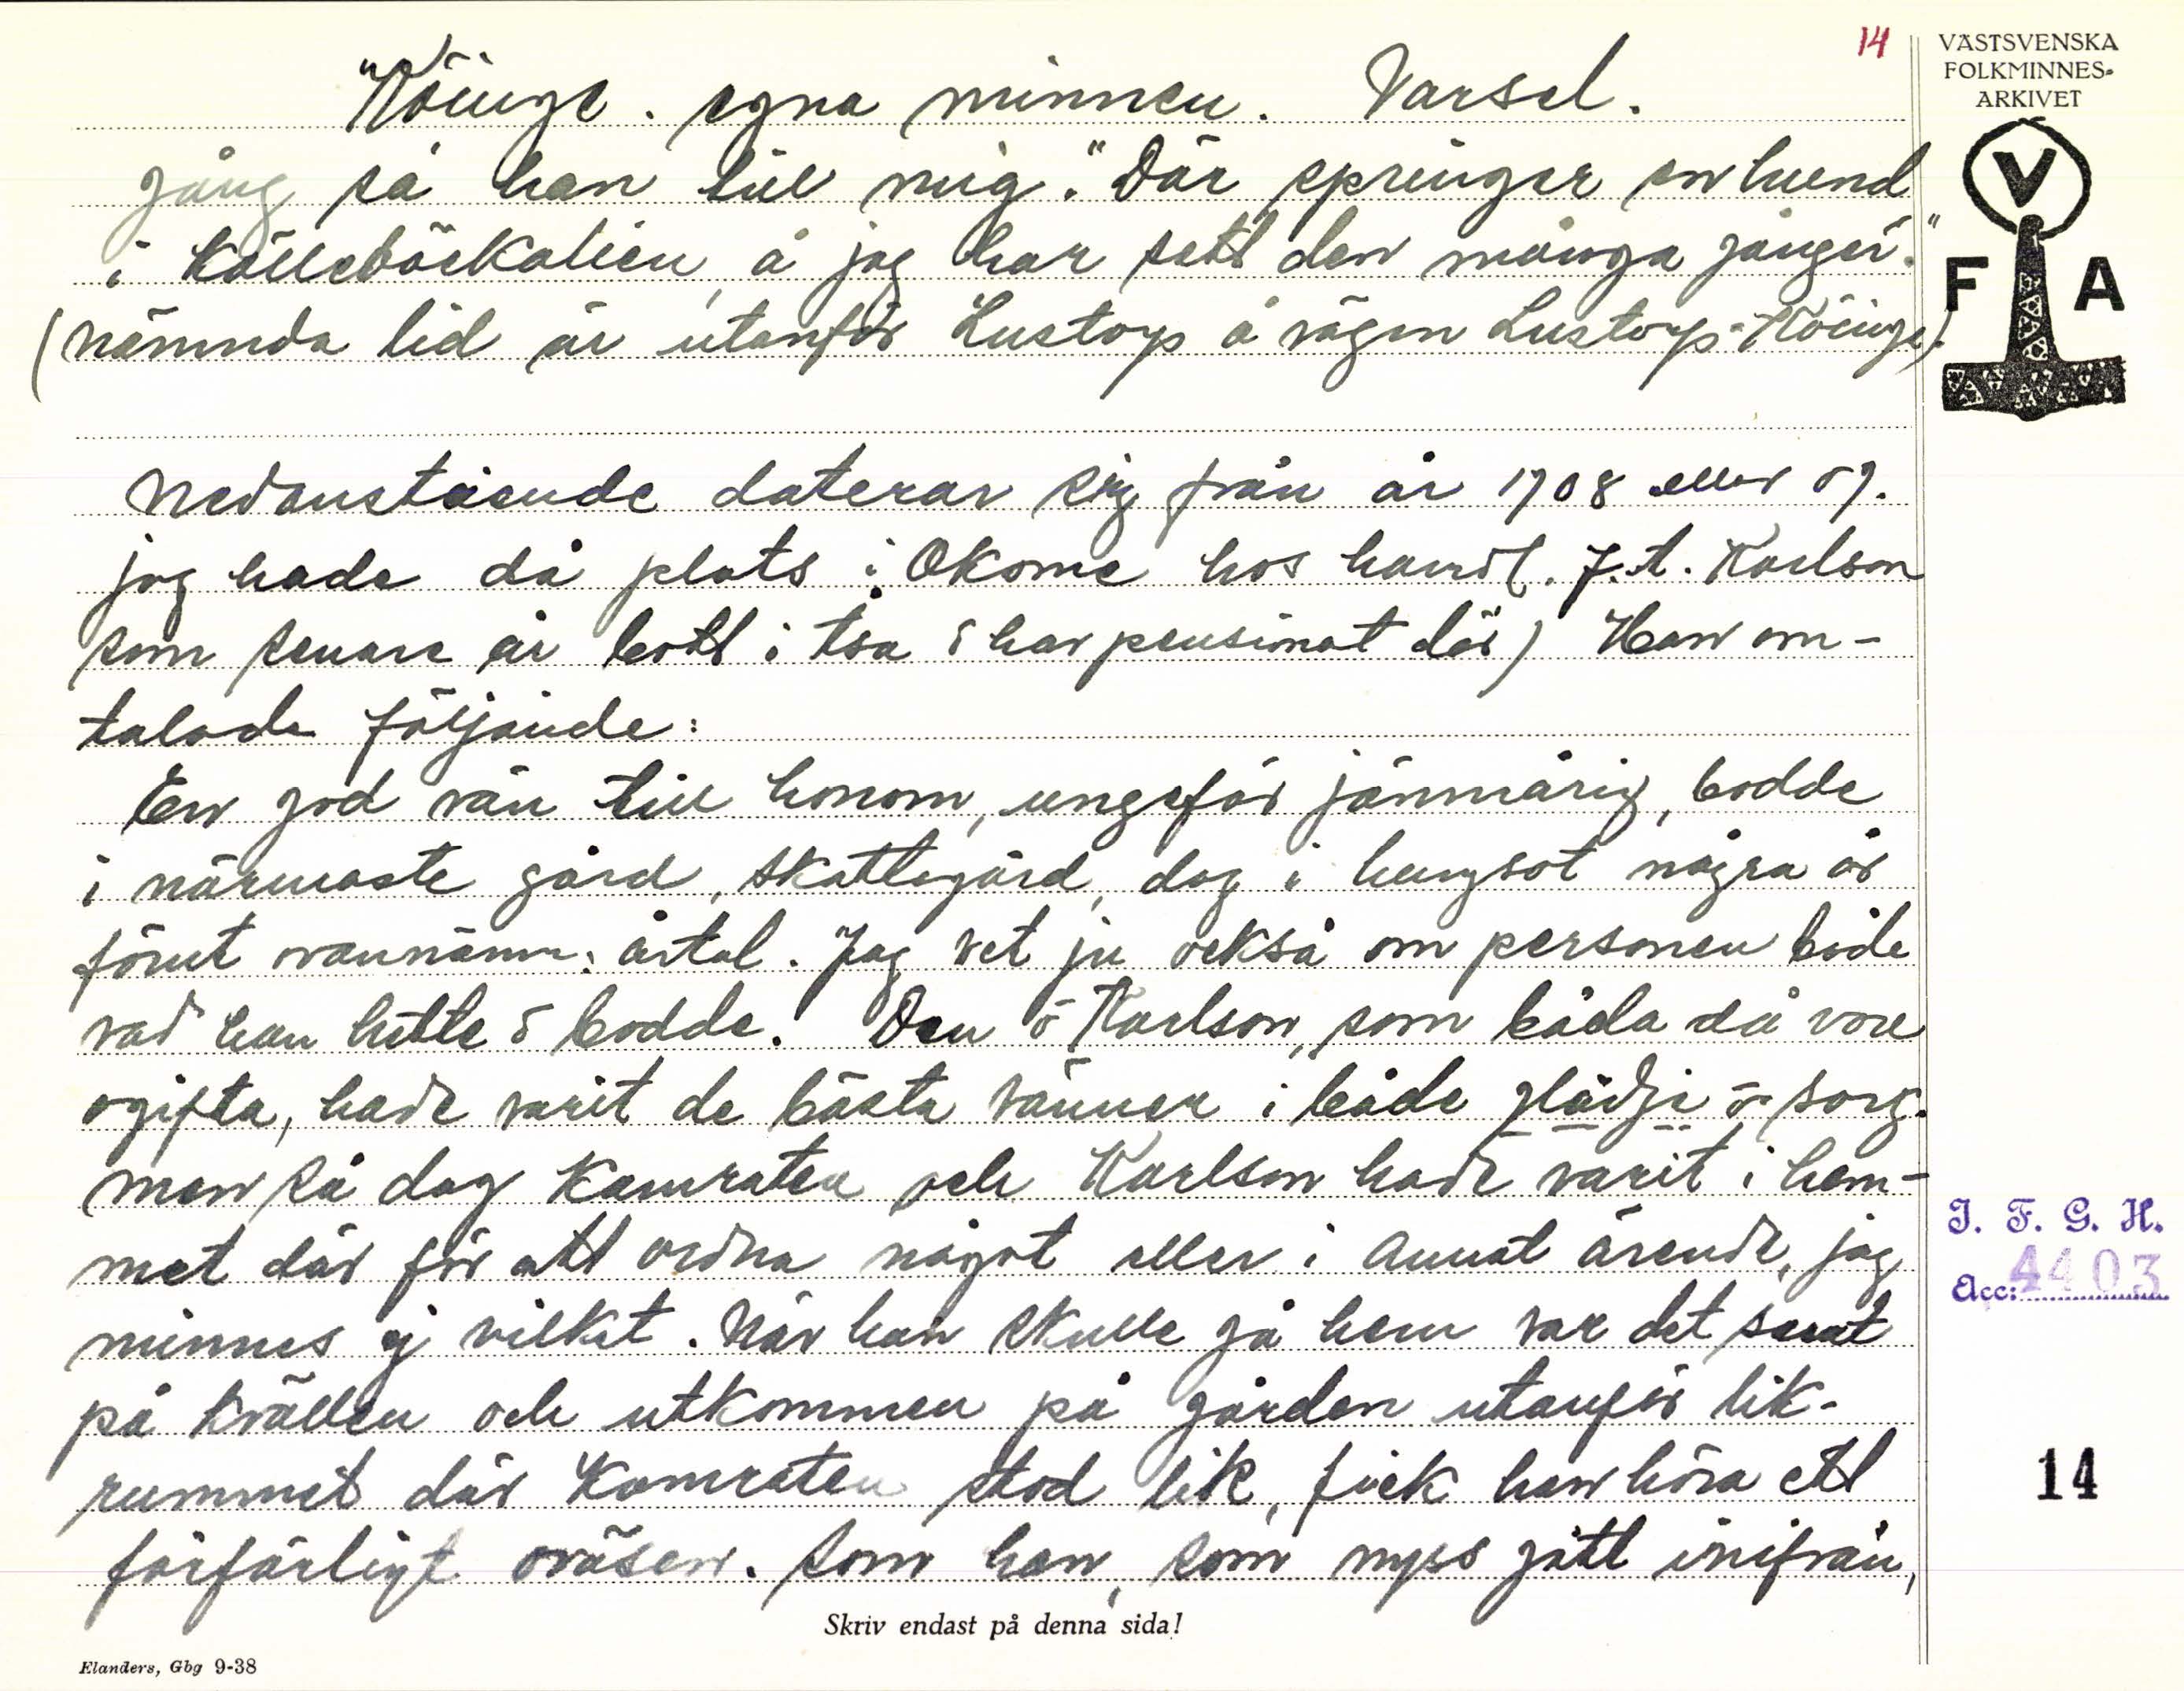 14
VÄSTSVENSKA
FOLKMINNES-
ARKIVET
V
F A
"Köinge. egna minnen. Varsel.
gång sa han till mig. "Där springer en hund
i Källebäckalien, å jag har sett den många gånger."
(nämnda lid är utanför Lustorp å vägen Lustorp-Köinge).
Nedanstående daterar sig från år 1908 eller 09.
jag hade då plats i Okome hos handl. J. A. Karlson
som senare år bott i Åsa å har pensinat där) Han om-
talade följande:
En god vän till honom, ungefär jämnårig, bodde
i närmaste gård, Skattegård, dog i lungsot några år
förut ovannämn: årtal. Jag vet ju också om personen både
vad han hette å bodde. Den å Karlson, som båda då vore
ogifta, hade varit de bästa vänner i både glädje å sorg.
men så dog kamraten och Karlson hade varit i hem-
met där för att ordna något eller i annat ärende, jag
minnes ej vilket. När han skulle gå hem var det sent
på kvällen och utkommen på gården utanför lik-
rummet där kamraten stod lik, fick han höra ett
förfärligt oväsen. Som han, som nyss gått inifrån,
I. F. G. H.
Acc: 4403
14
Skriv endast på denna sida!
Elanders, Gbg 9-38